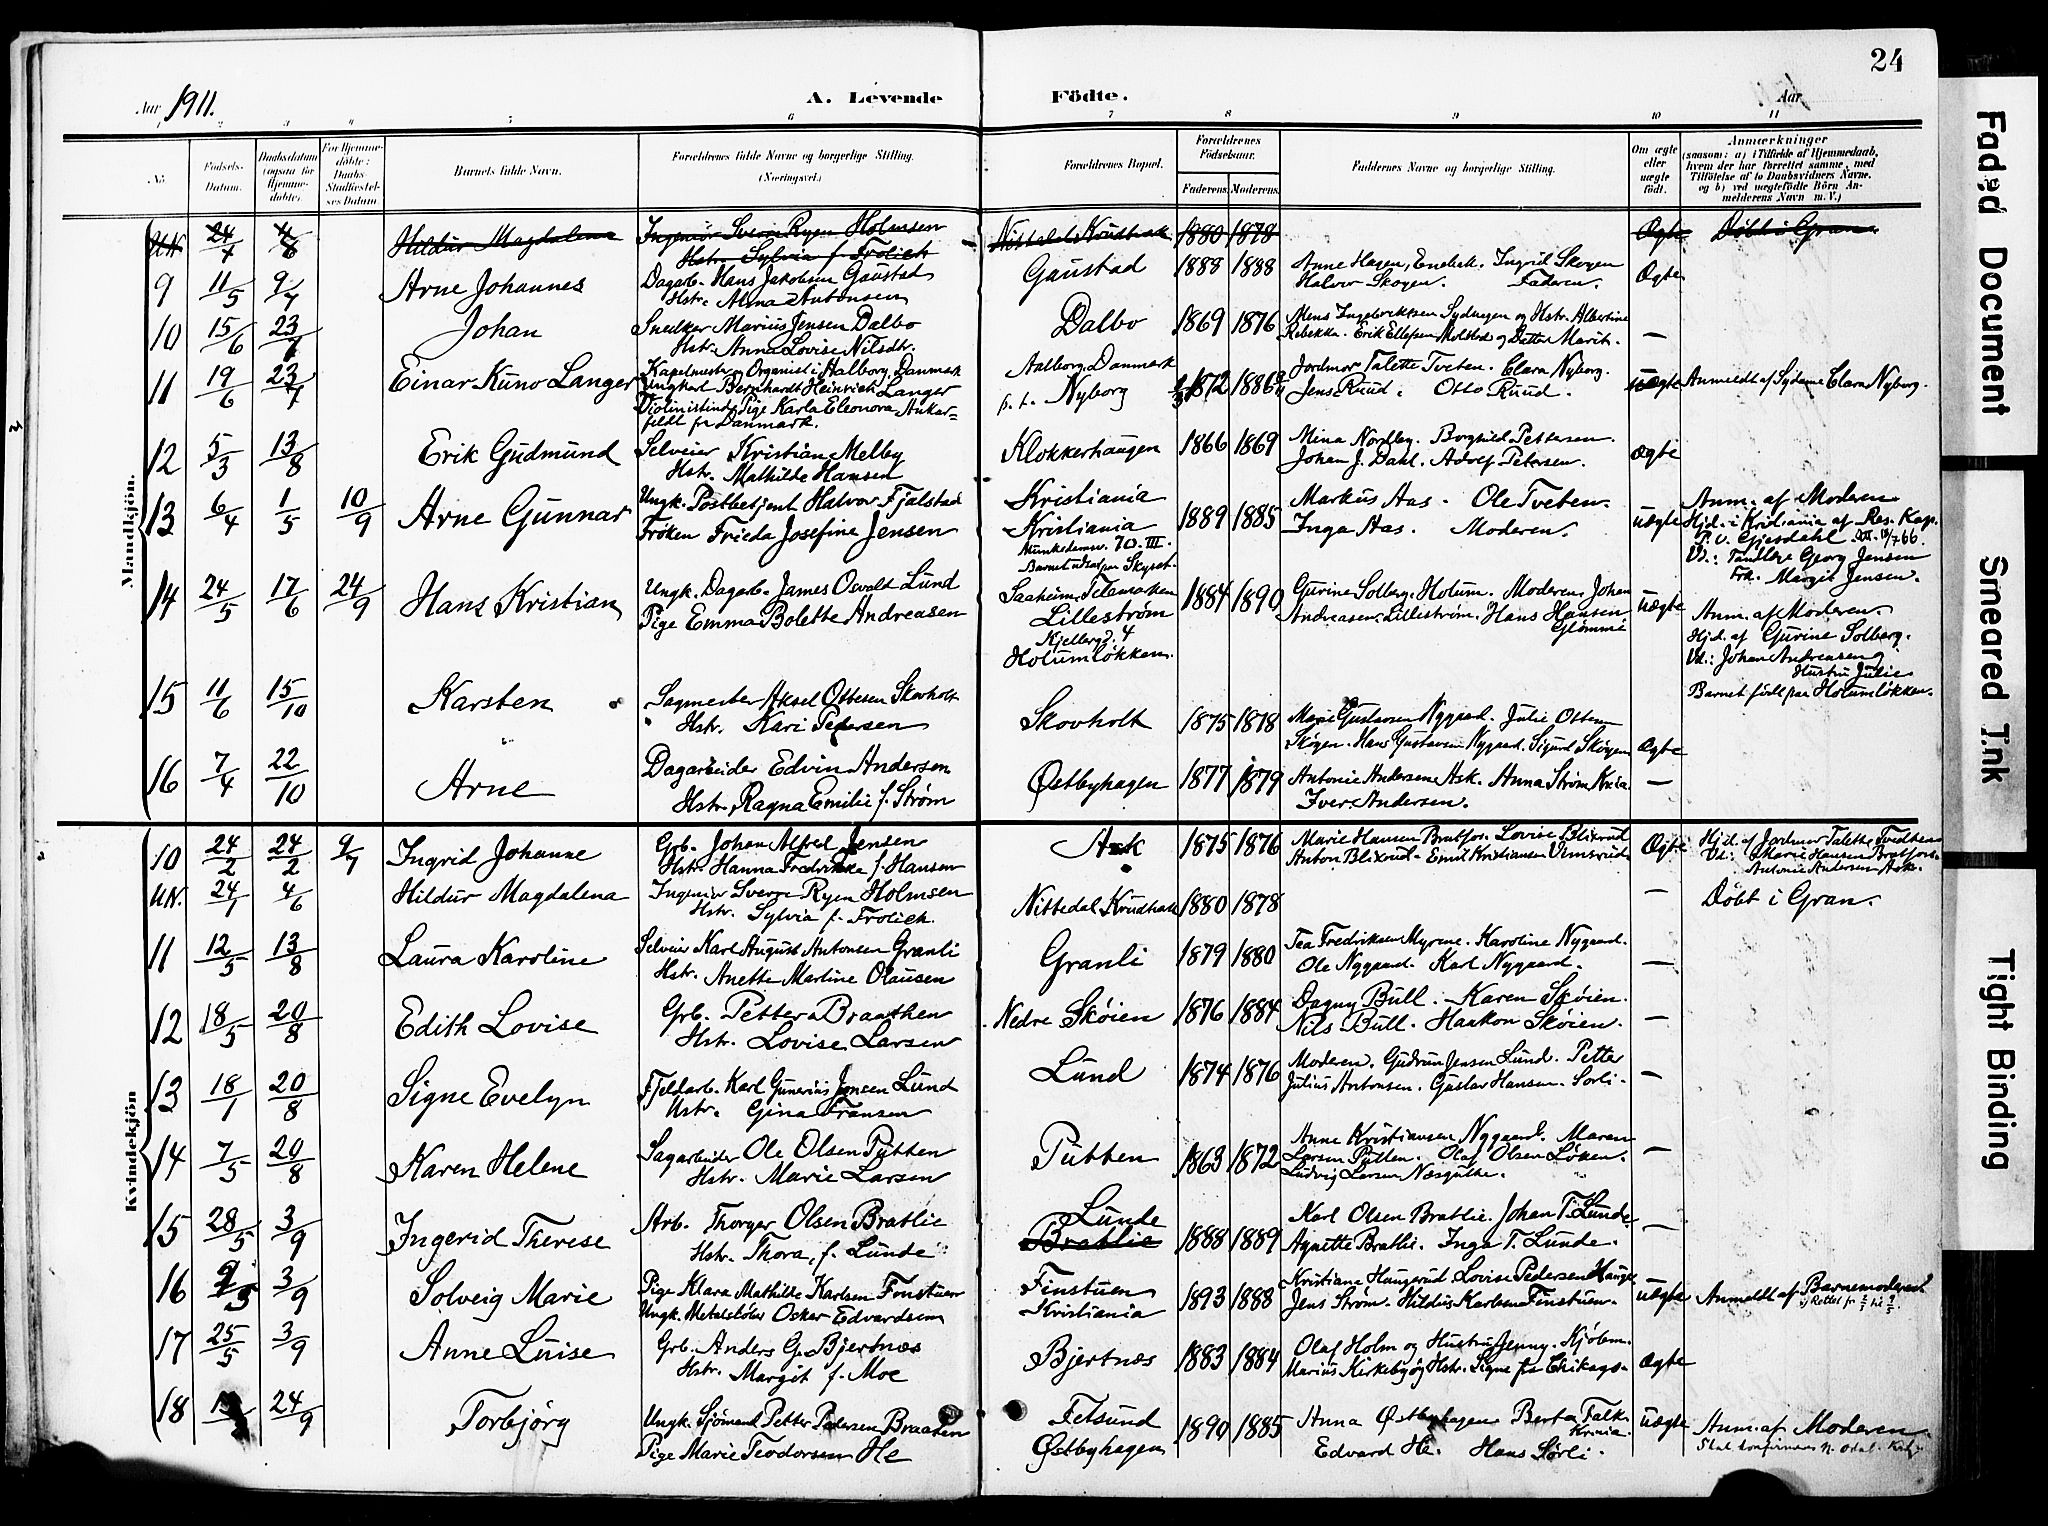 24
Aar 1911.
A. Levende Födte.
Aar
1 2 3 4 5 6 7 8 9 10 11
No
Födsels-Datum.
Daabsdatum (ogsaa for Hjemme-döbte).
For Hjemme-döbte: Daabs-Stadfæstel-ses Datum
Barnets fulde Navn.
Forældrenes fulde Navne og borgerlige Stilling.
(Næringsvei.)
Forældrenes Bopæl.
Forældrenes Födselsaar.
Faderens. Moderens.
Faddernes Navne og borgerlige Stilling.
Om ægte eller uægte födt.
Anmærkninger
(saasom: a) i Tilfælde af Hjemmedaab, hvem der har forrettet samme, med Tilföielse af to Daabsvidners Navne. og b) ved uægtefödte Börn Anmelderens Navn m. V.)
Mandkjön.
U.N. 24/4 4/8 Hildur Magdalena Ingeniör Sverre Ryen Holmsen Nittedals Krudtværk 1880 1878 Ægte Döbt i Gran.
Hstr. Sylvia f. Frölich
9 11/5 9/7 Arne Johannes Dagarb. Hans Jakobsen Gaustad Gaustad 1888 1888 Anne Hagen, Enebak. Ingrid Skogen Ægte
Hstr. Alma Antonsen Halvor Skogen. Faderen.
10 15/6 23/7 Johan Snedker Marius Jensen Dalbo Dalbo 1869 1876 Mens Ingebrektsen Sydengen og Hstr. Albertine —
Hstr. Anna Lovise Nilsdtr. Rebekka. Erik Ellefsen Molstad og Datter Marit.
11 19/6 23/7 Einar Kuno Langer Kapelmester og Organist i Aalborg, Danmark Aalborg, Danmark 1872 1886 Jordmor Talette Tveten. Clara Nyborg. uægte Anmeldt af Sydame Clara Nyborg.
Ungkarl Bernhardt Heinrich Langer p. t. Nyborg Jens Ruud. Otto Ruud.
Violinistinde Pige Karla Eleonora Ankar=
feldt fr Danmark.
12 5/3 13/8 Erik Gudmund Selveier Kristian Melby Klokkerhaugen 1866 1869 Mina Nordby. Borghild Pettersen. Ægte
Hstr. Mathilde Hansen Johan J. Dahl. Adolf Petersen.
13 6/4 1/5 10/9 Arne Gunnar Ungk. Postbetjent Halvor Fjalstad Kristiania 1889 1885 Markus Aas. Ole Tveten. uægte Anm. af Moderen
Fröken Frieda Josefine Jensen Kristiania Inga Aas. Moderen. Hjd. i Kristiania af Res. Kap.
Munkedamsv. 70. III. P. v. Gjesdahl
Barnet udsat paa Skyset. Vd.: Georg Jensen
Frk. Margit Jensen.
14 24/5 17/6 24/9 Hans Kristian Ungk. Dagarb. James Osvald Lund Saaheim, Telemarken 1884 1890 Gurine Solberg, Holum. Moderen. Johan uægte Anm. af Moderen.
Pige Emma Bolette Andreasen Lilleström Andreasen, Lilleström. Hans Hansen Hjd. af Gurine Solberg.
Kjellergd. 4 Glömmi Vd.: Johan Andreasen og
Holumlökken. Hustru Julie
Barnet födt paa Holumlökken.
15 11/6 15/10 Karsten Sagmester Aksel Ottesen Skovholt Skovholt 1875 1878 Marie Gustavsen Nygaard. Julie Ottesen Ægte
Hstr. Kari Petersen Skogen. Hans Gustavsen Nygaard. Sigurd Skogen
16 7/4 22/10 Arne Dagarbeider Edvin Andersen Østbyhagen 1877 1879 Antonie Andersen Ask. Anna Ström Kr.ia. —
Hstr. Ragna Emilie f. Ström Iver Andersen.
Kvindekjön
10 24/2 24/2 9/7 Ingrid Johanne Grb. Johan Alfred Jensen Ask 1875 1876 Marie Hansen Bratfos. Lovise Blixrud Ægte Hjd. af Jordmor Talette Tvedten
Hstr. Hanna Fredrikke f. Hansen Anton Blixrud. Emil Kristiansen Vimsrud Vd: Marie Hansen Bratfors.
Antonie Andersen Ask.
U.N. 24/1 4/6 Hildur Magdalena Ingeniör Sverre Ryen Holmsen Nittedal Krudtværk 1880 1878 — Döbt i Gran.
Hstr. Sylvia f. Frölich.
11 12/5 13/8 Laura Karoline Selveier Karl August Antonsen Granli Granli 1879 1880 Tea Fredriksen Myrene. Karoline Nygaard. —
Hstr. Anette Martine Olausen Ole Nygaard. Karl Nygaard.
12 18/5 20/8 Edith Lovise Grb. Petter Braathen Nedre Sköien 1876 1884 Dagny Bull. Karen Sköien. —
Hstr. Lovise Larsen Nils Bull. Haakon Sköien.
13 18/1 20/8 Signe Evelyn Fjeldarb. Karl Gunerius Jensen Lund Lund 1874 1876 Moderen. Gudrun Jensen Lund. Petter —
Hstr. Gina Fransen Julius Antonsen. Gustav Hansen. Sorli.
14 7/5 20/8 Karen Helene Sagarbeider Ole Olsen Putten Putten 1863 1872 Anne Kristiansen Nygaard. Maren —
Hstr. Marie Larsen Larsen Putten. Olaf Olsen Löken.
Ludvig Larsen Næsgutke.
15 28/5 3/9 Ingerid Therese Arb. Thorger Olsen Bratlie Lunde 1888 1889 Karl Olsen Bratlie. Johan T. Lunde. —
Hstr. Thora, f. Lunde Bratlie Agnette Bratlie. Inga T. Lunde.
16 3/9 Solveig Marie Pige Klara Mathilde Karlsen Finstuen Finstuen 1893 1888 Kristiane Haugerud. Lovise Pedersen Hauge uægte Anmeldt af Barnemoderen
Ungk. Metalstöber Oskar Edvardsen Kristiania Jens Ström. Hildus Karlsen Finstuen.
17 25/5 3/9 Anne Luise Grb. Anders G. Bjertnæs Bjertnæs 1883 1884 Olaf Holm og Hustru Jenny. Kjöbm. Ægte
Hstr. Margit f. Moe Marius Kirkebyög Hstr. Signe fra Chikago.
18 24/9 Torbjörg Ungk. Sjömand Petter Pedersen Braaten Fetsund 1890 1885 Anna Østbyhagen. Berta Falk uægte Anm. af Moderen.
Pige Marie Teodorsen He Østbyhagen Kr.ia. Edvard He. Hans Sörli. Skal konfirmeres N. Odal. Kirke
Faded Document
Smeared Ink
Tight Binding